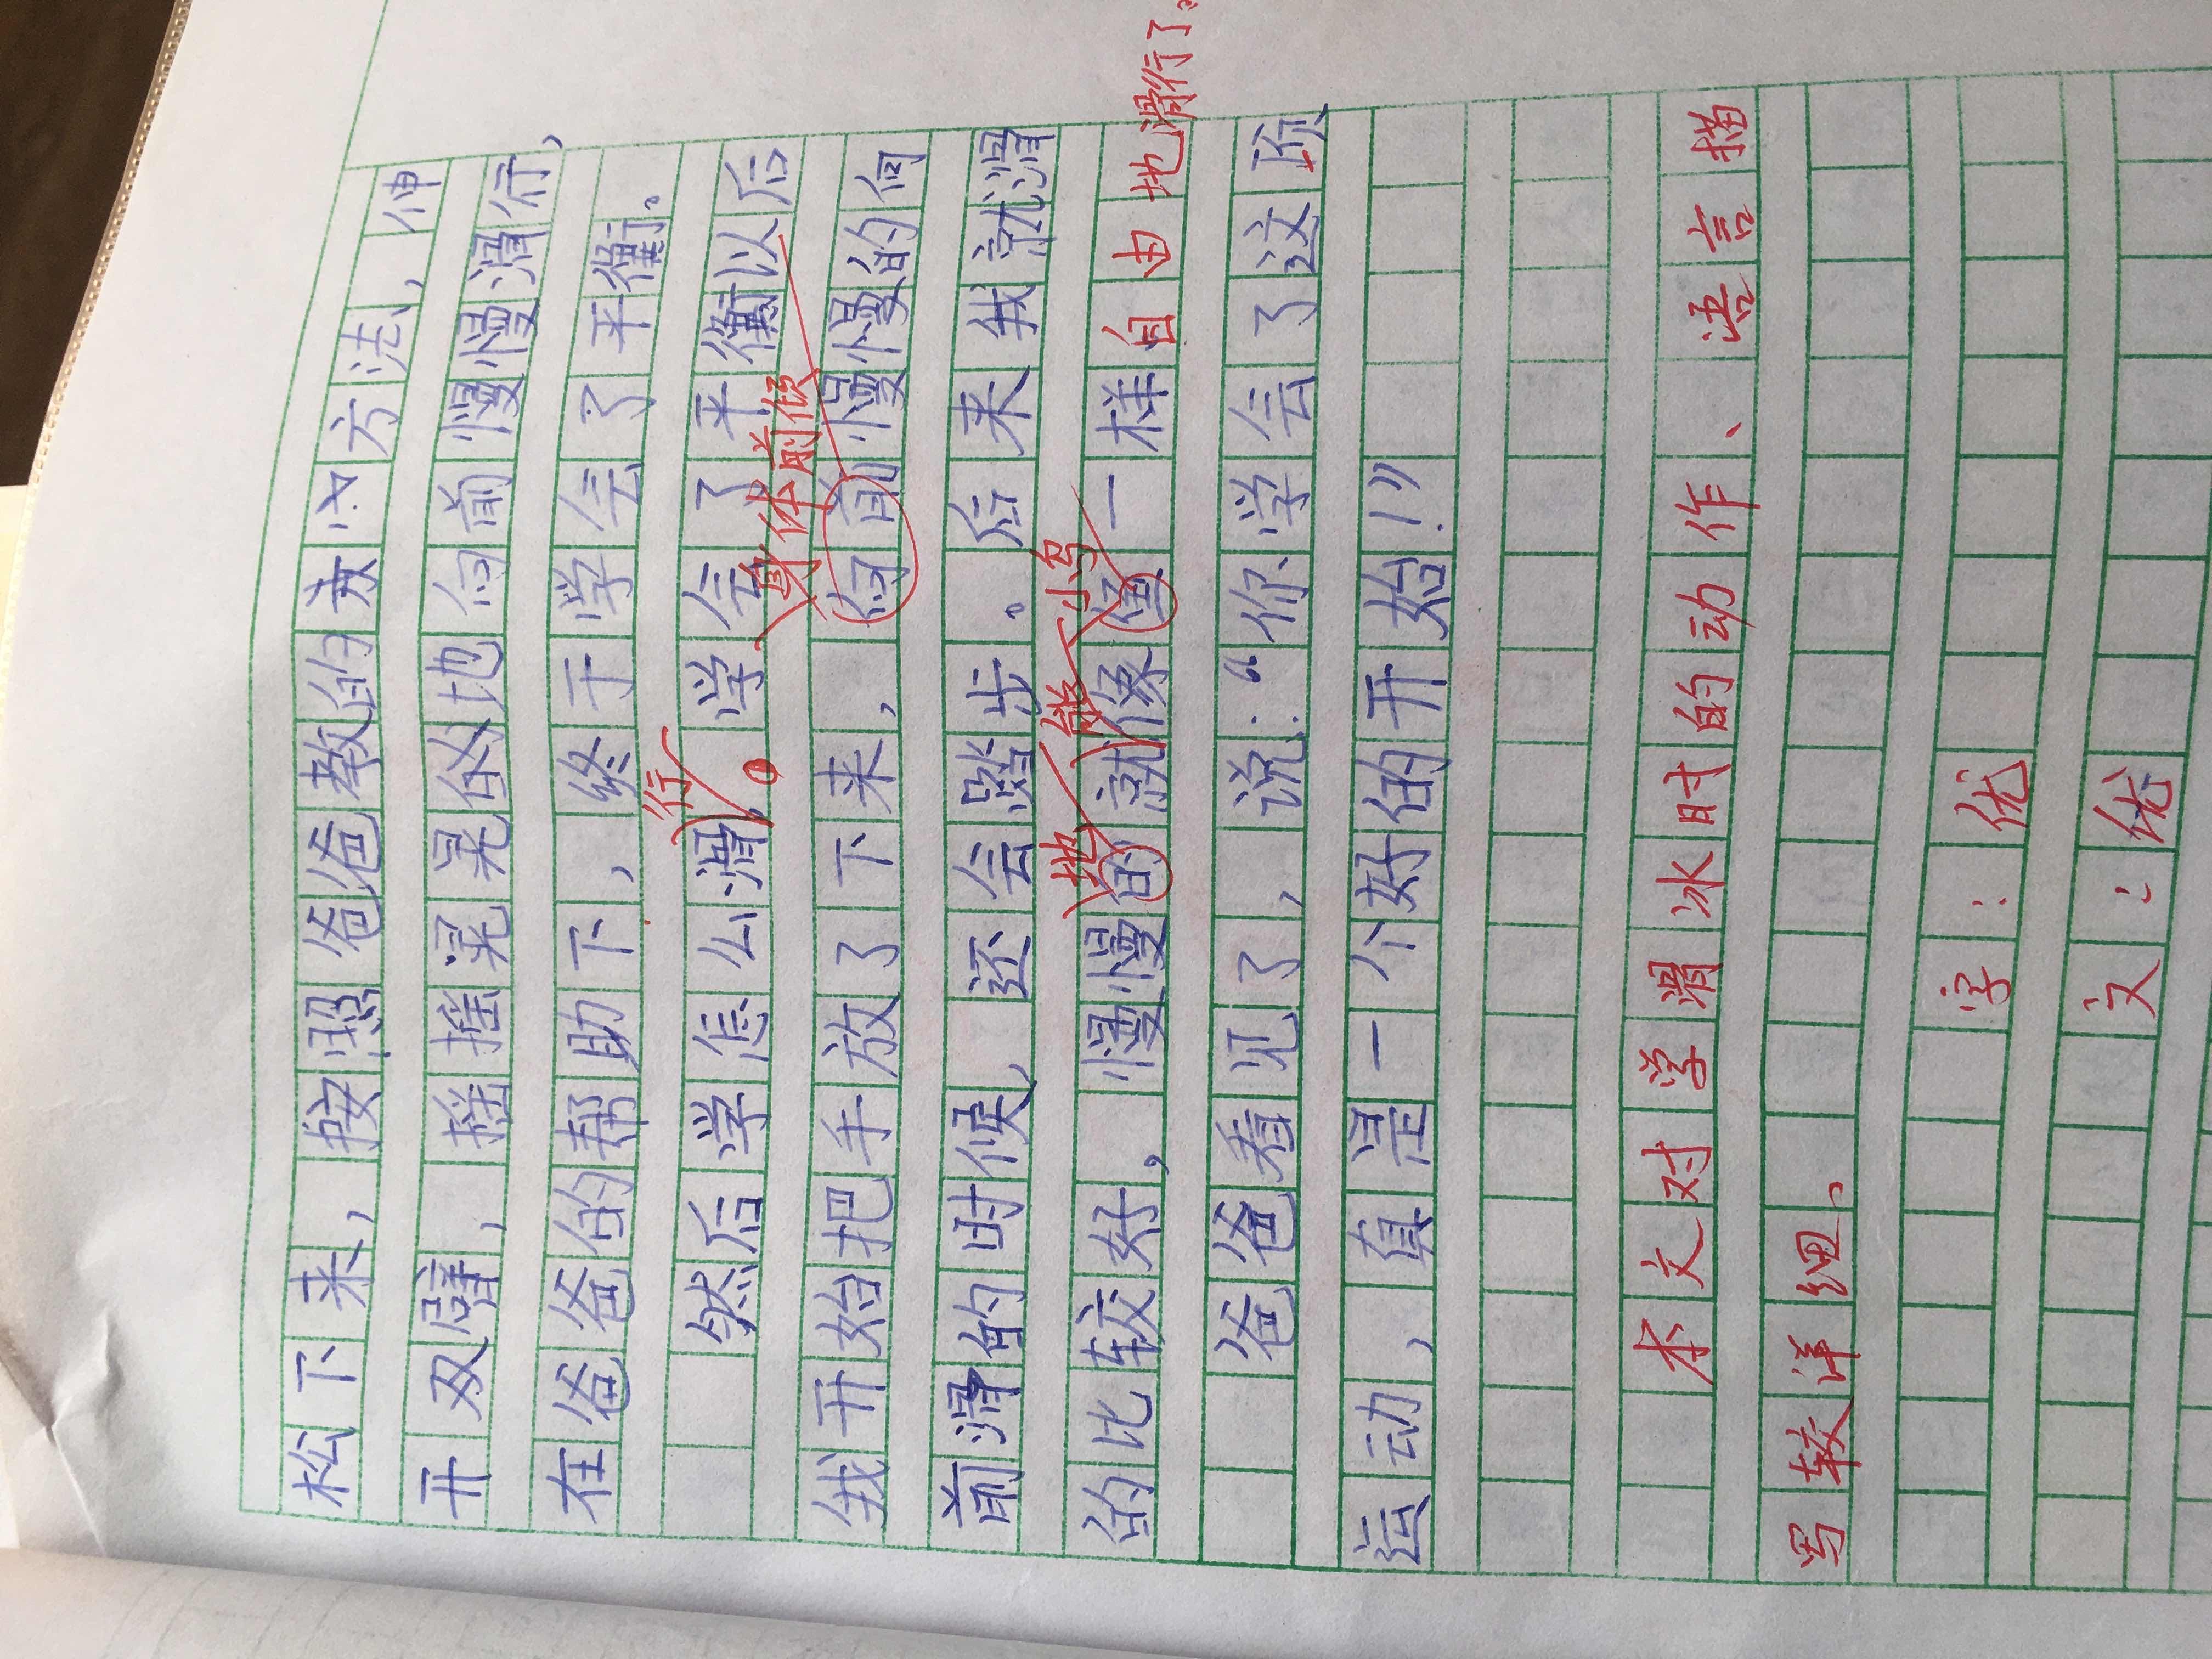 松下来，按照爸爸教的方法，伸
开双臂，摇摇晃晃地向前慢慢滑行，
在爸爸的帮助下，终于学会了平衡。
行
然后学怎么滑。学会了平衡以后
身体前倾
我开始把手放了下来，向前慢慢的向
前滑的时候，还会踏步。后来我就滑
地 能 小鸟
的比较好，慢慢的就像 一样自由地滑行了。
爸爸看见了，说：“你学会了这项
运动，真是一个好的开始！”
本文对学滑冰时的动作、语言描
写较详细。
字：优
文：优